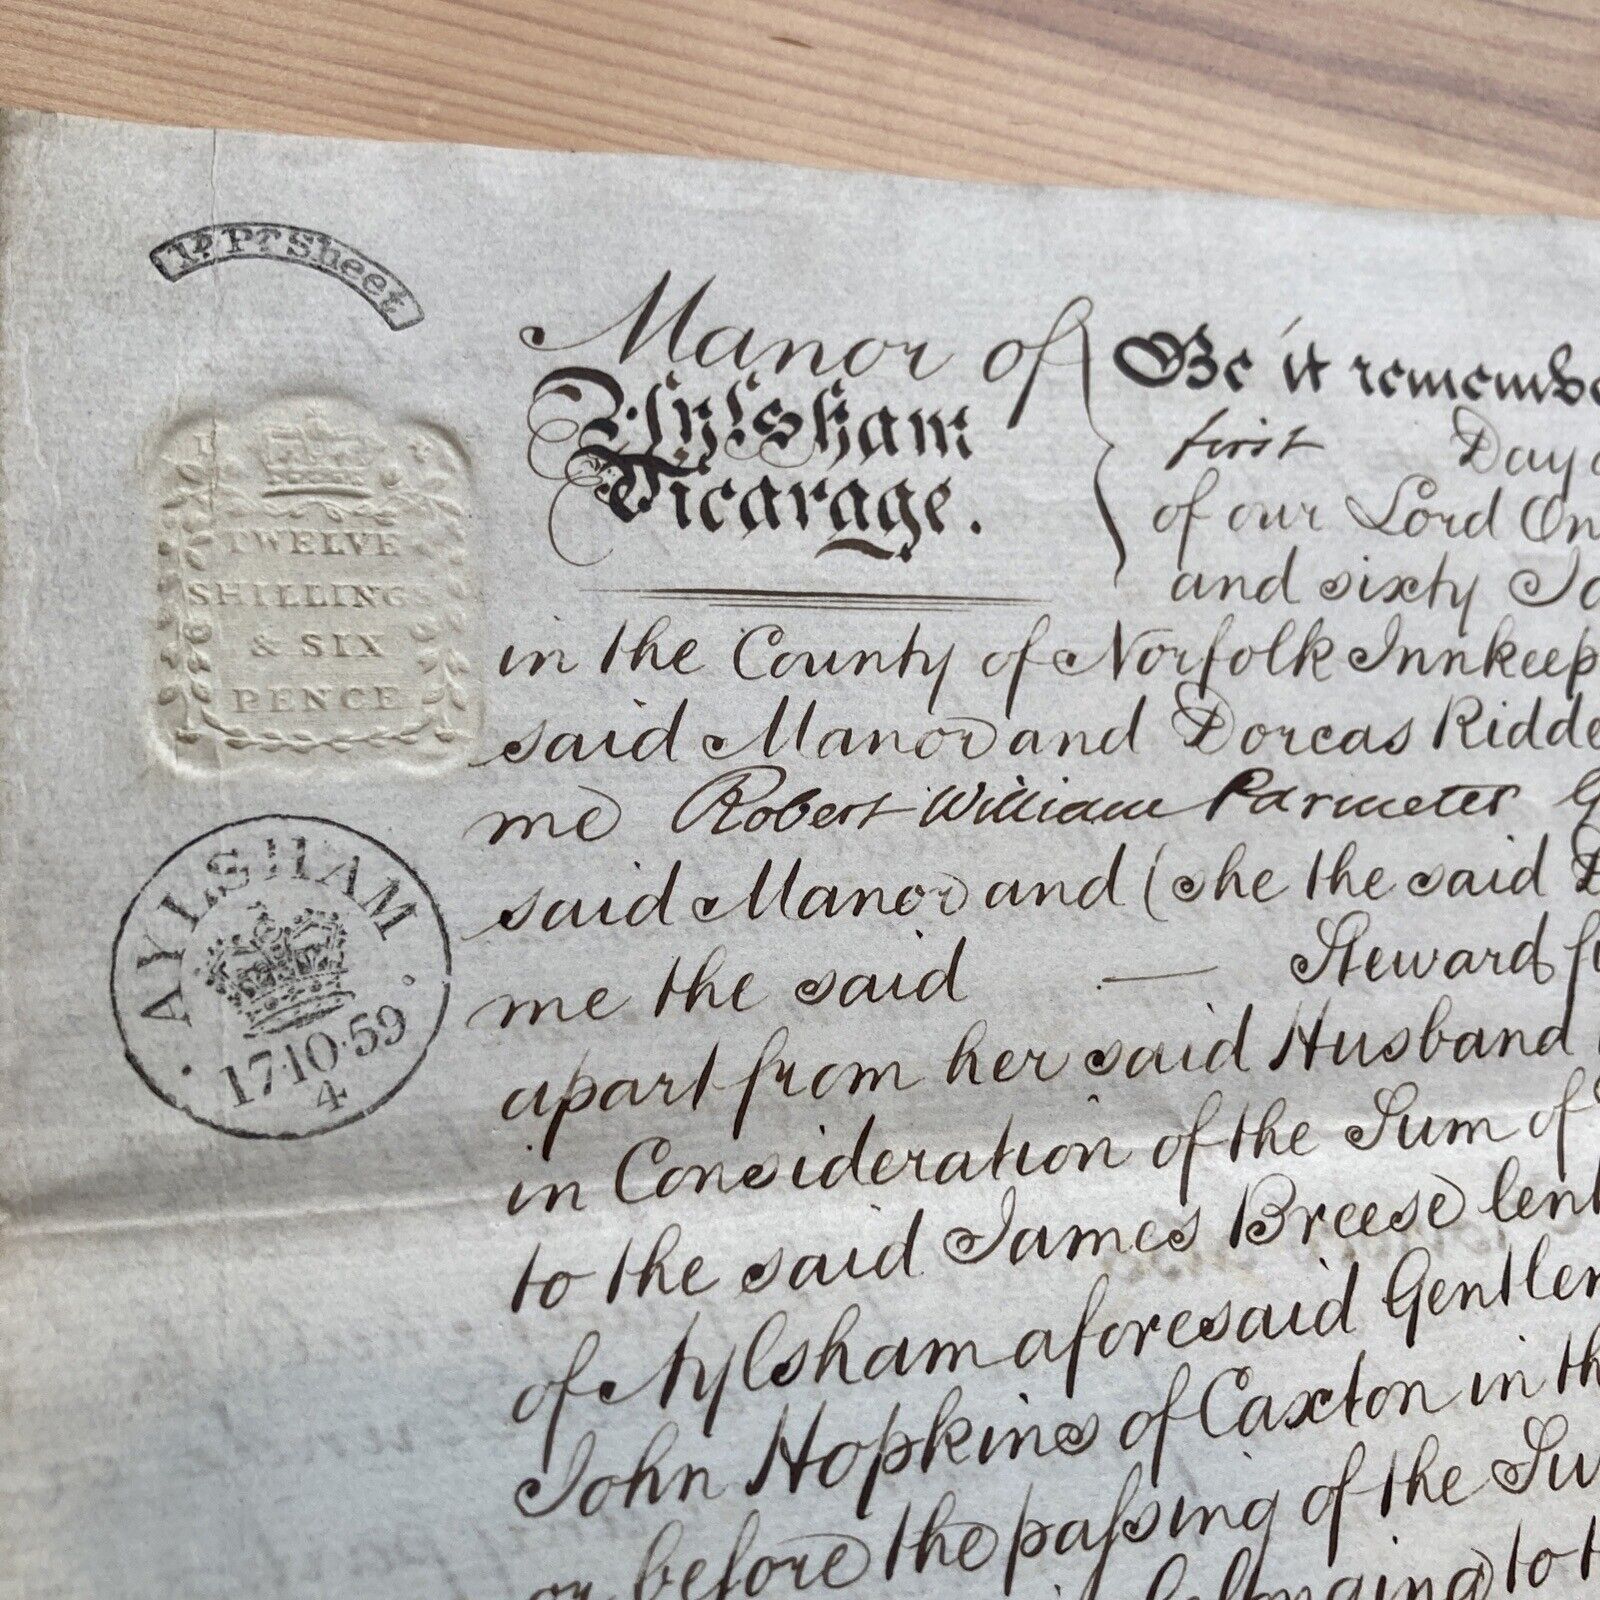 1D. Pr. Sheet
TWELVE
SHILLINGS
& SIX
PENCE
AYLSHAM
17·10·59
4
Manor of
Aylsham
Vicarage.
Be it remembe
first Day o
of our Lord On
and sixty Ja
in the County of Norfolk Innkeep
said Manor and Dorcas Ridde
me Robert William Parmeter G
said Manor and (she the said D
me the said — Steward fi
apart from her said Husband
in Consideration of the Sum of
to the said James Breese lent
of Aylsham aforesaid Gentlem
John Hopkins of Caxton in th
or before the paſsing of the Su
belonging to t